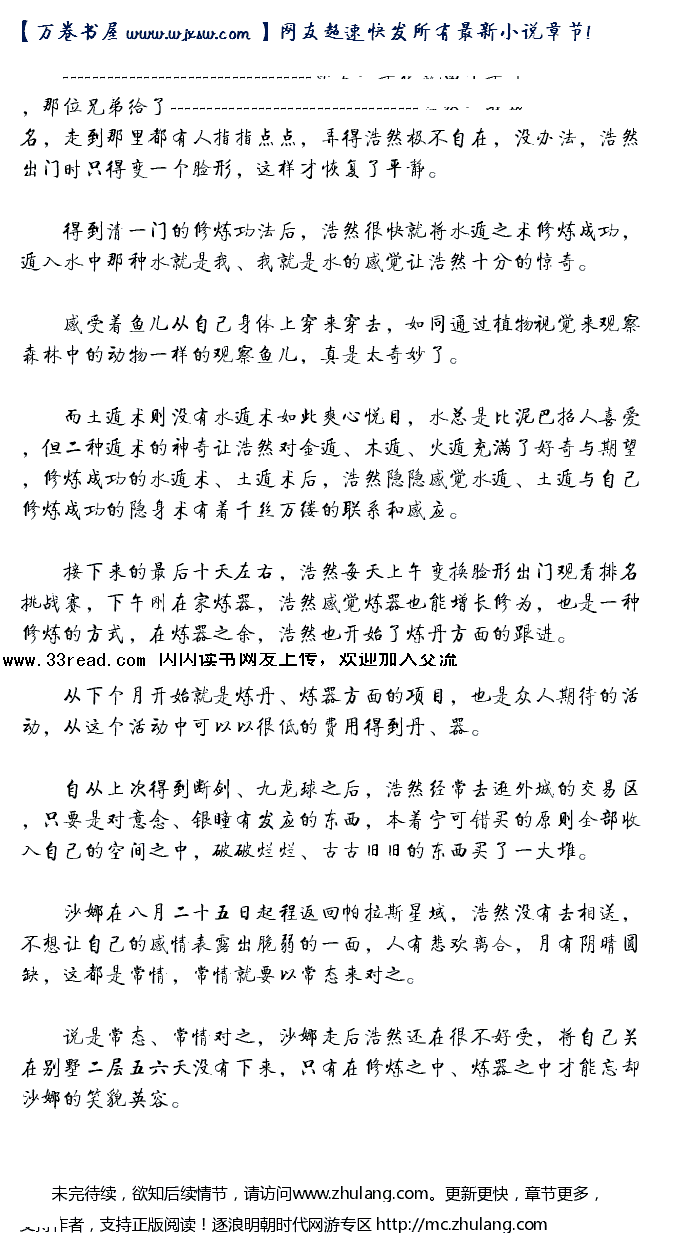 【 万卷书屋 www.wjxsw.com 】网友超速快发所有最新小说章节!
，那位兄弟给了----------------------------------
名，走到那里都有人指指点点，弄得浩然极不自在，没办法，浩然
出门时只得变一个脸形，这样才恢复了平静。
得到清一门的修炼功法后，浩然很快就将水遁之术修炼成功，
遁入水中那种水就是我、我就是水的感觉让浩然十分的惊奇。
感受着鱼儿从自己身体上穿来穿去，如同通过植物视觉来观察
森林中的动物一样的观察鱼儿，真是太奇妙了。
而土遁术则没有水遁术如此爽心悦目，水总是比泥巴招人喜爱
，但二种遁术的神奇让浩然对金遁、木遁、火遁充满了好奇与期望
，修炼成功的水遁术、土遁术后，浩然隐隐感觉水遁、土遁与自己
修炼成功的隐身术有着千丝万缕的联系和感应。
接下来的最后十天左右，浩然每天上午变换脸形出门观看排名
挑战赛，下午则在家炼器，浩然感觉炼器也能增长修为，也是一种
修炼的方式，在炼器之余，浩然也开始了炼丹方面的跟进。
www.33read.com 闪闪读书网友上传，欢迎加入交流
从下个月开始就是炼丹、炼器方面的项目，也是众人期待的活
动，从这个活动中可以以很低的费用得到丹、器。
自从上次得到断剑、九龙球之后，浩然经常去逛外城的交易区
，只要是对意念、银瞳有发应的东西，本着宁可错买的原则全部收
入自己的空间之中，破破烂烂、古古旧旧的东西买了一大堆。
沙娜在八月二十五日起程返回帕拉斯星域，浩然没有去相送，
不想让自己的感情表露出脆弱的一面，人有悲欢离合，月有阴晴圆
缺，这都是常情，常情就要以常态来对之。
说是常态、常情对之，沙娜走后浩然还在很不好受，将自己关
在别墅二层五六天没有下来，只有在修炼之中、炼器之中才能忘却
沙娜的笑貌英容。
未完待续，欲知后续情节，请访问www.zhulang.com。更新更快，章节更多，
支持作者，支持正版阅读！逐浪明朝时代网游专区 http://mc.zhulang.com